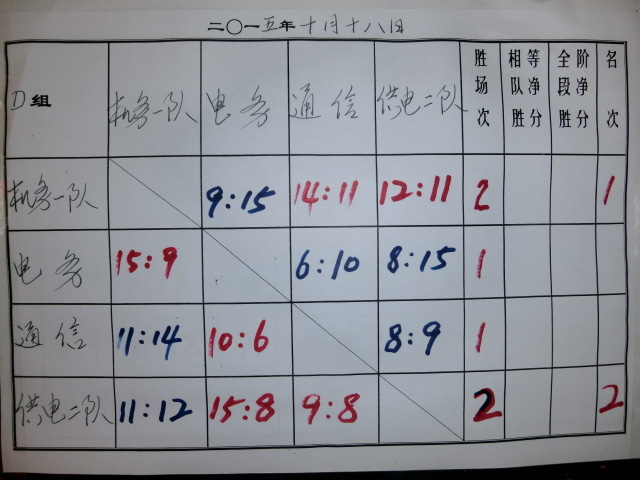 二〇一五年十月十八日
D组 机务一队 电务 通信 供电二队 胜场次 相等队净胜分 全阶段净胜分 名次
机务一队 9:15 14:11 12:11 2 1
电务 15:9 6:10 8:15 1
通信 11:14 10:6 8:9 1
供电二队 11:12 15:8 9:8 2 2